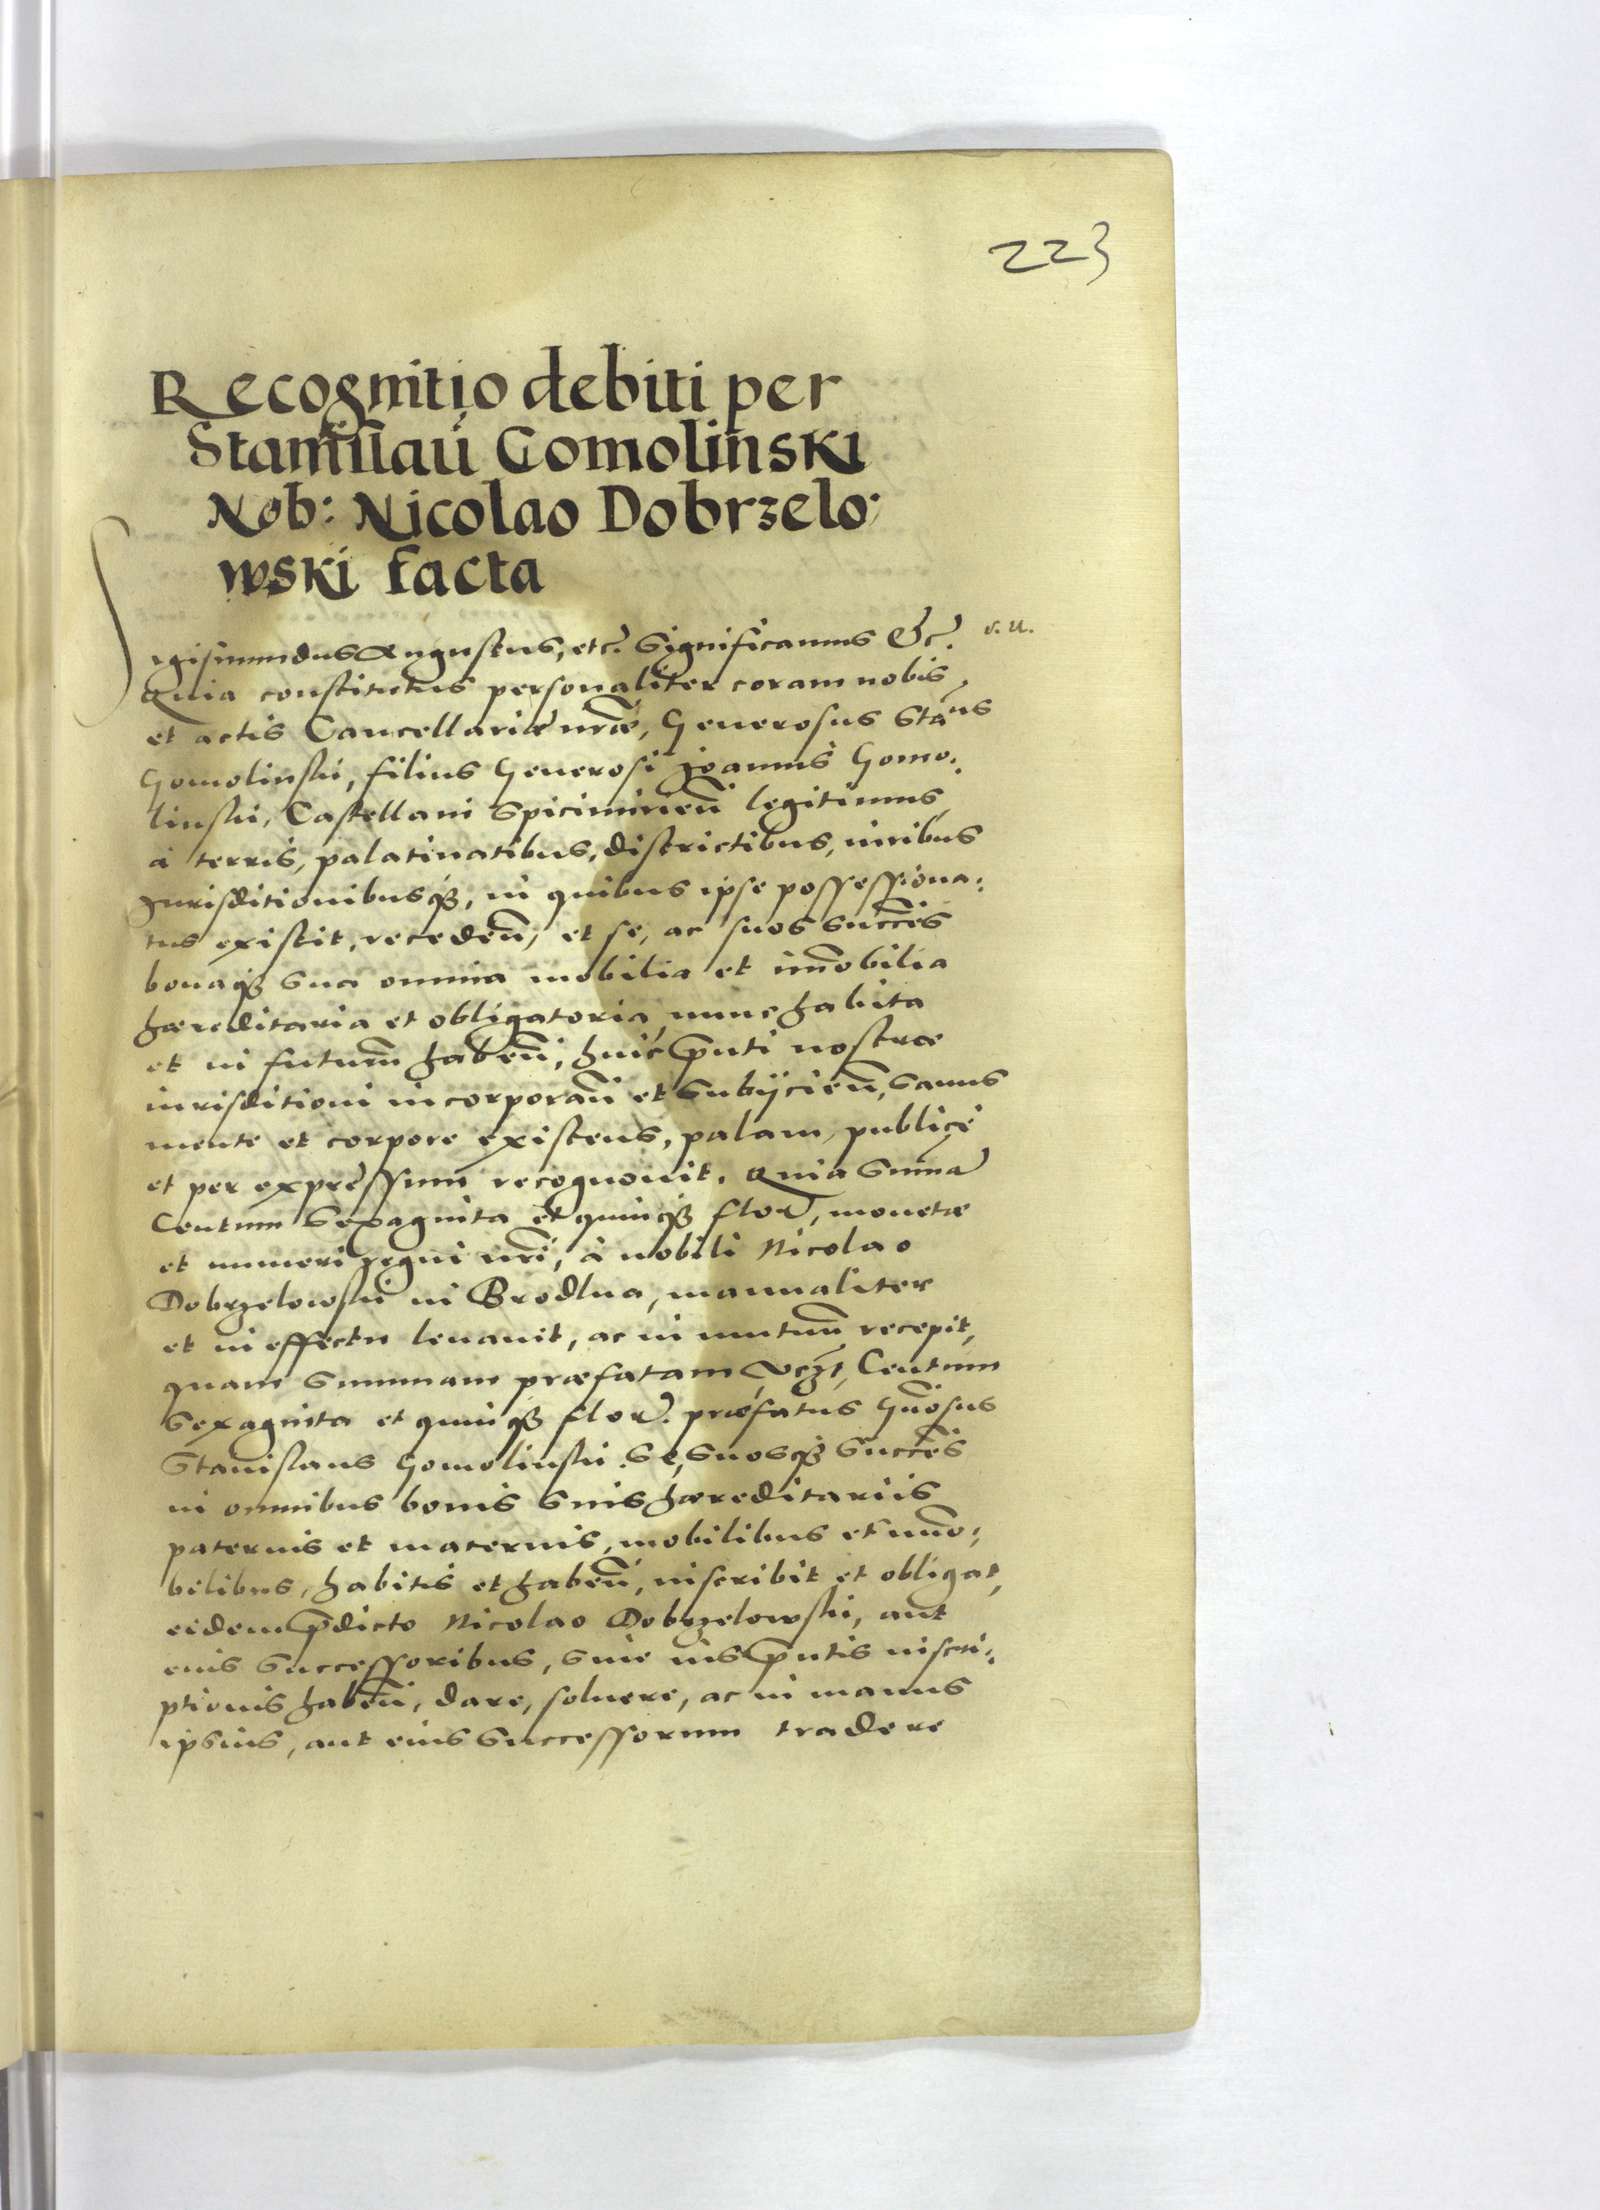 223
Recognitio debiti per
Stanislaū Gomolinski
Nob: Nicolao Dobrzelo:
wski facta
Sigismundus Augustus, etc. Significamus &c.
Quia constitutus personaliter coram nobis,
et actis Cancellariæ nr̄æ, Generosus Staus
Gomolinski, filius Generosi Joannis Gomo:
linski, Castellani Spicimirien̄ legitimus,
à terris, palatinatibus, districtibus, iuribus
Jurisditionibusq3, in quibus ipse possessiona:
tus existit, receden̄, et se, ac suos succes̄
bonaq3 sua omnia mobilia et im̄obilia
hæreditaria et obligatoria nunc habita
et in futurū haben̄, huic p̄nti nostræ
iurisditioni incorporan̄ et subijcien̄, sanus
mente et corpore existens, palam, publicè
et per expressum recognouit. Quia suma
Centum Sexaginta et quinq3 flor, monetæ
et numeri regni nr̄i, à nobili Nicolao
Dobrzelowski in Brodlna, manualiter
et in effectu leuauit, ac in mutuū recepit,
quam summam præfatam vcz̄t, Centum
Sexaginta et quinq3 flor. præfatus Gn̄osus
Stanislaus Gomolinski se, suosq3 succes̄
in omnibus bonis suis hæreditariis
paternis et maternis, mobilibus et im̄o:
bilibus, habitis et haben̄, inscribit et obligat,
eidem p̄dicto Nicolao Dobrzelowski, aut
eius successoribus, siue ius p̄ntis inscri:
ptionis haben̄, dare, soluere, ac in manus
ipsius, aut eius successorum tradere